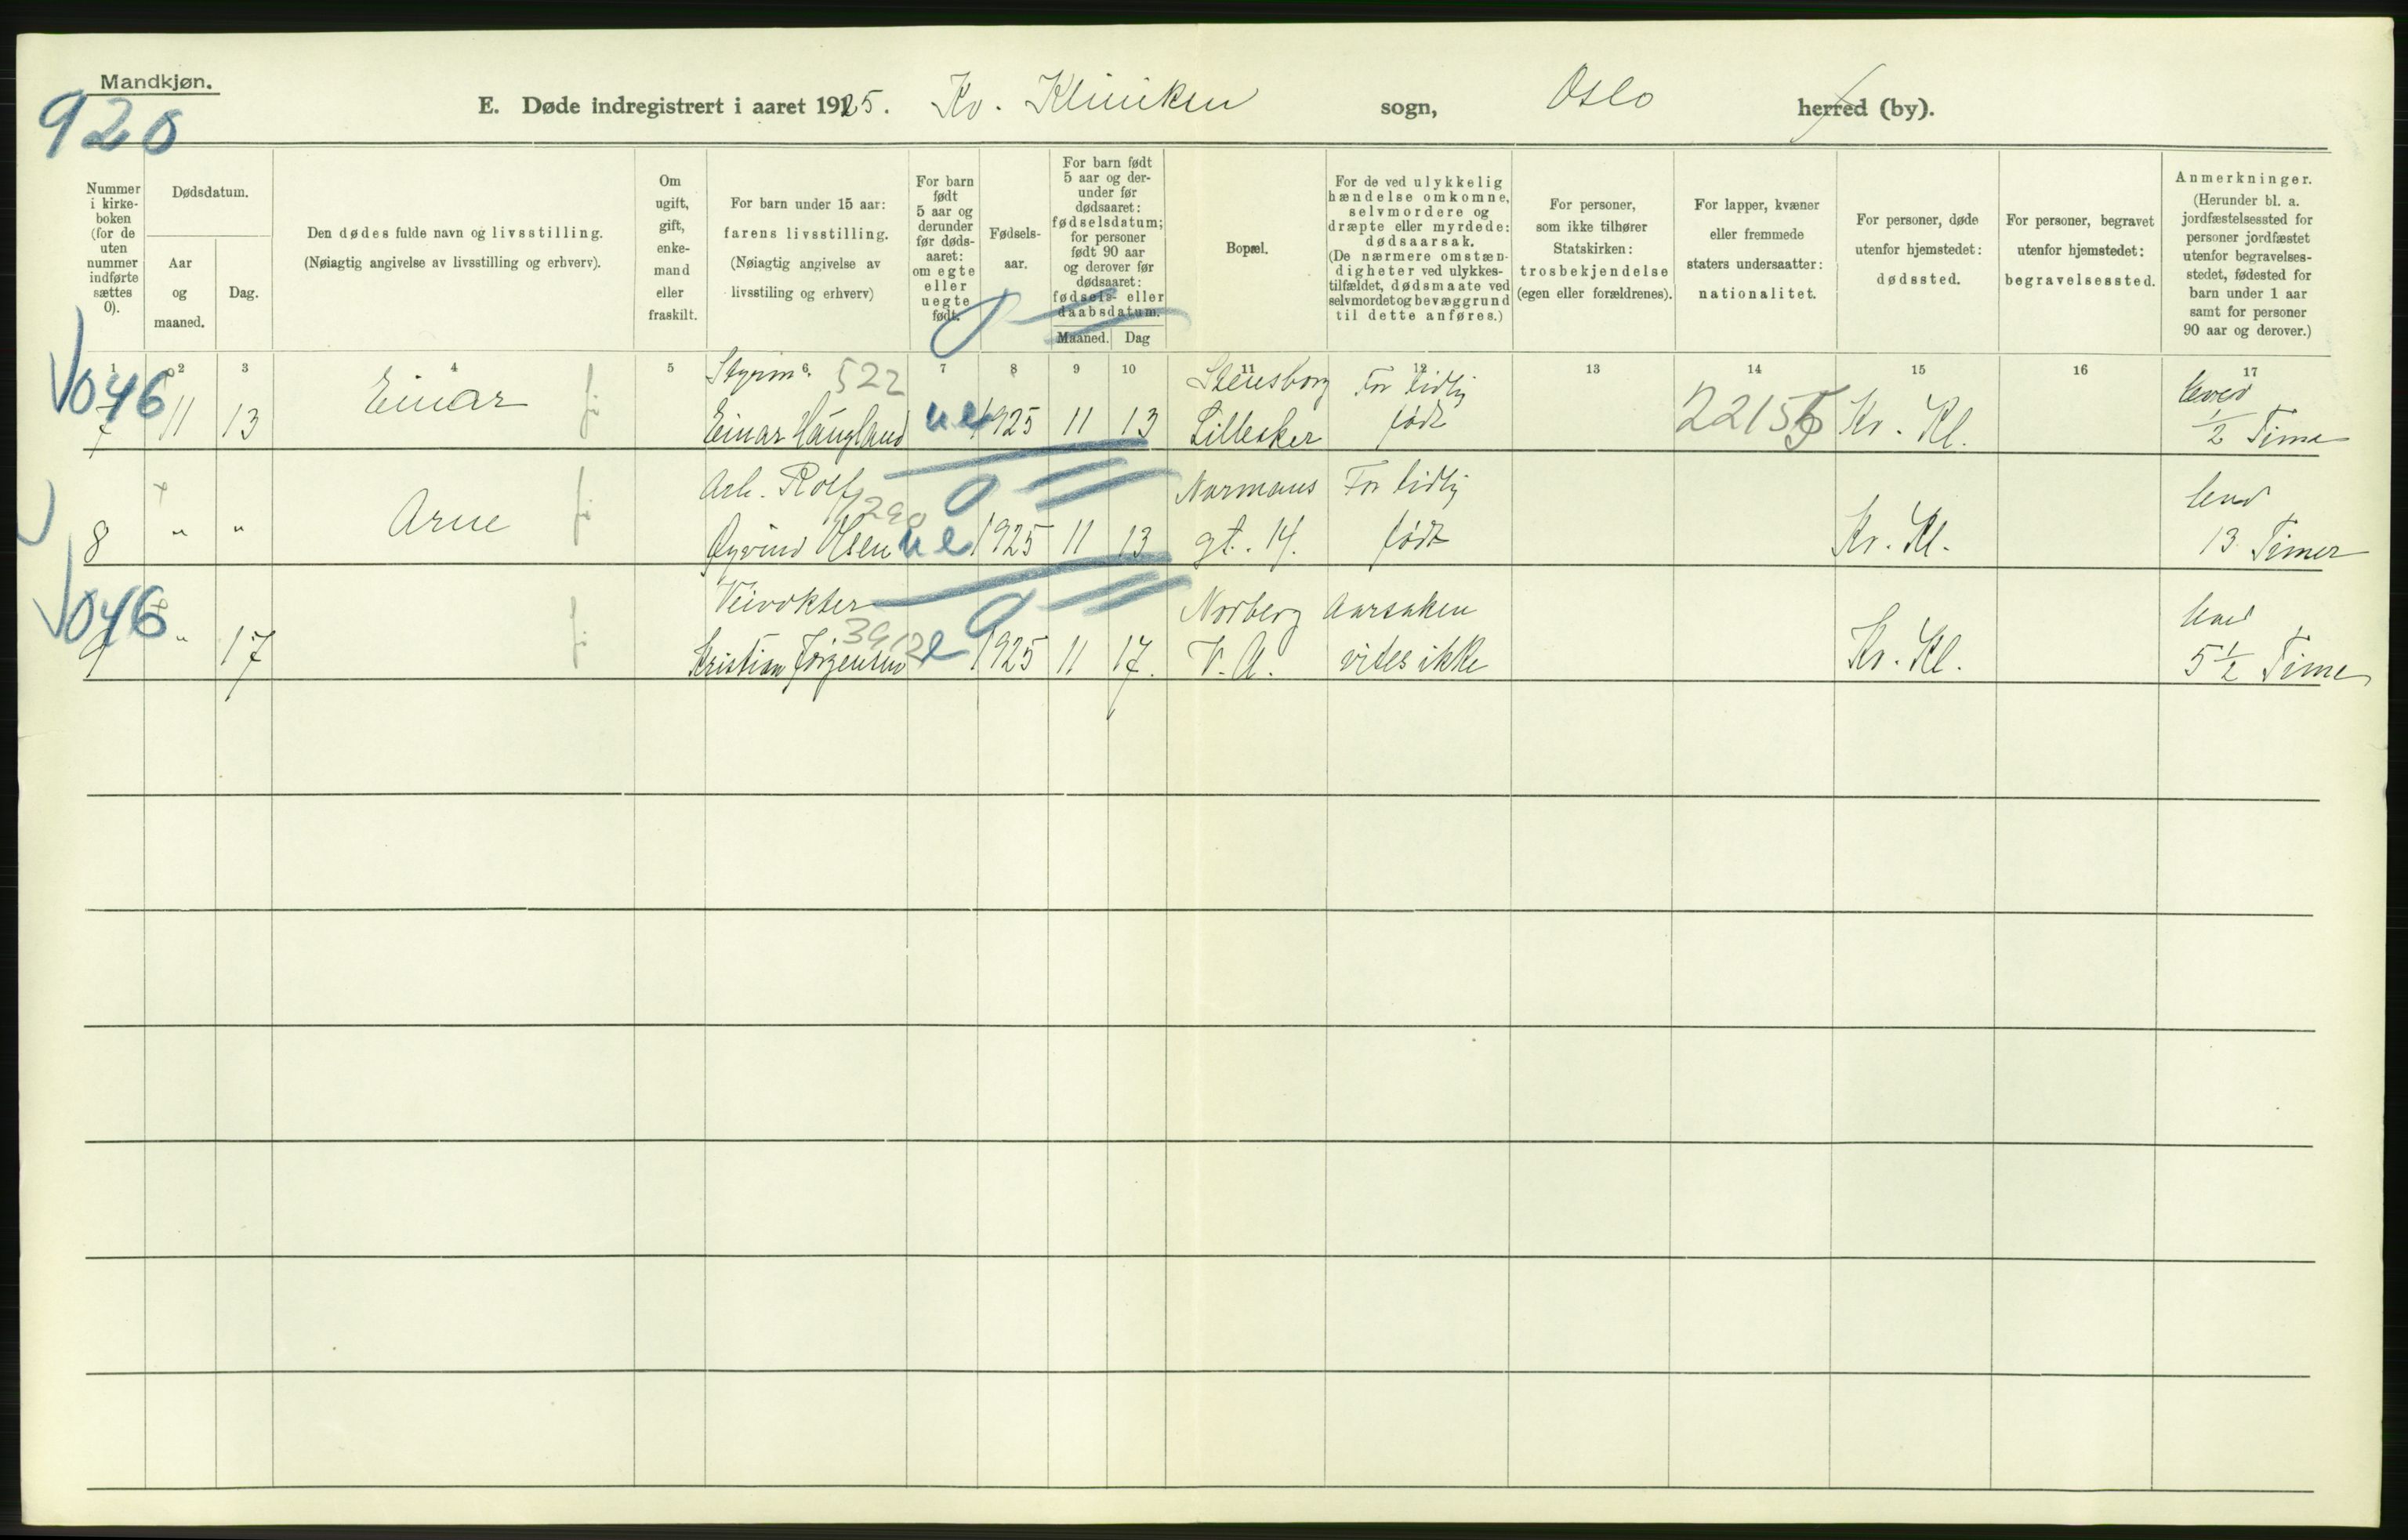 Mandkjøn.
920
E. Døde indregistrert i aaret 1925. Kv. Kliniken sogn, Oslo herred (by).
Nummer i kirkeboken (for de uten nummer indførte sættes 0).
Dødsdatum.
Aar og maaned.
Dag.
Den dødes fulde navn og livsstilling. (Nøiagtig angivelse av livsstilling og erhverv).
Om ugift, gift, enkemand eller fraskilt.
For barn under 15 aar: farens livsstilling. (Nøiagtig angivelse av livsstiling og erhverv)
For barn født 5 aar og derunder før dødsaaret: om egte eller uegte født.
Fødselsaar.
For barn født 5 aar og derunder før dødsaaret: fødselsdatum; for personer født 90 aar og derover før dødsaaret: fødsels- eller daabsdatum.
Maaned. Dag
Bopæl.
For de ved ulykkelig hændelse omkomne, selvmordere og dræpte eller myrdede: dødsaarsak. (De nærmere omstændigheter ved ulykkestilfældet, dødsmaate ved selvmordet og bevæggrund til dette anføres.)
For personer, som ikke tilhører Statskirken: trosbekjendelse (egen eller forældrenes).
For lapper, kvæner eller fremmede staters undersaatter: nationalitet.
For personer, døde utenfor hjemstedet: dødssted.
For personer, begravet utenfor hjemstedet: begravelsessted.
Anmerkninger. (Herunder bl. a. jordfæstelsessted for personer jordfæstet utenfor begravelsesstedet, fødested for barn under 1 aar samt for personer 90 aar og derover.)
1 2 3 4 5 6 7 8 9 10 11 12 13 14 15 16 17
046 Styrm. 522 Stensborg For tidlig leved
7 11 13 Einar Einar Haugland ue 1925 11 13 Lilleaker født 22155 Kv. Kl. 1/2 Time
Arb. Rolf Normans For tidlig levd
8 " " Arne Øyvind Olsen ue 1925 11 13 gt. 14. født Kv. Kl. 13 Timer
046 Veivokter 3912 Norberg Aarsaken levd
9 " 17 Kristian Jørgensen e 1925 11 17. V. A. vites ikke Kv. Kl. 5 1/2 Time